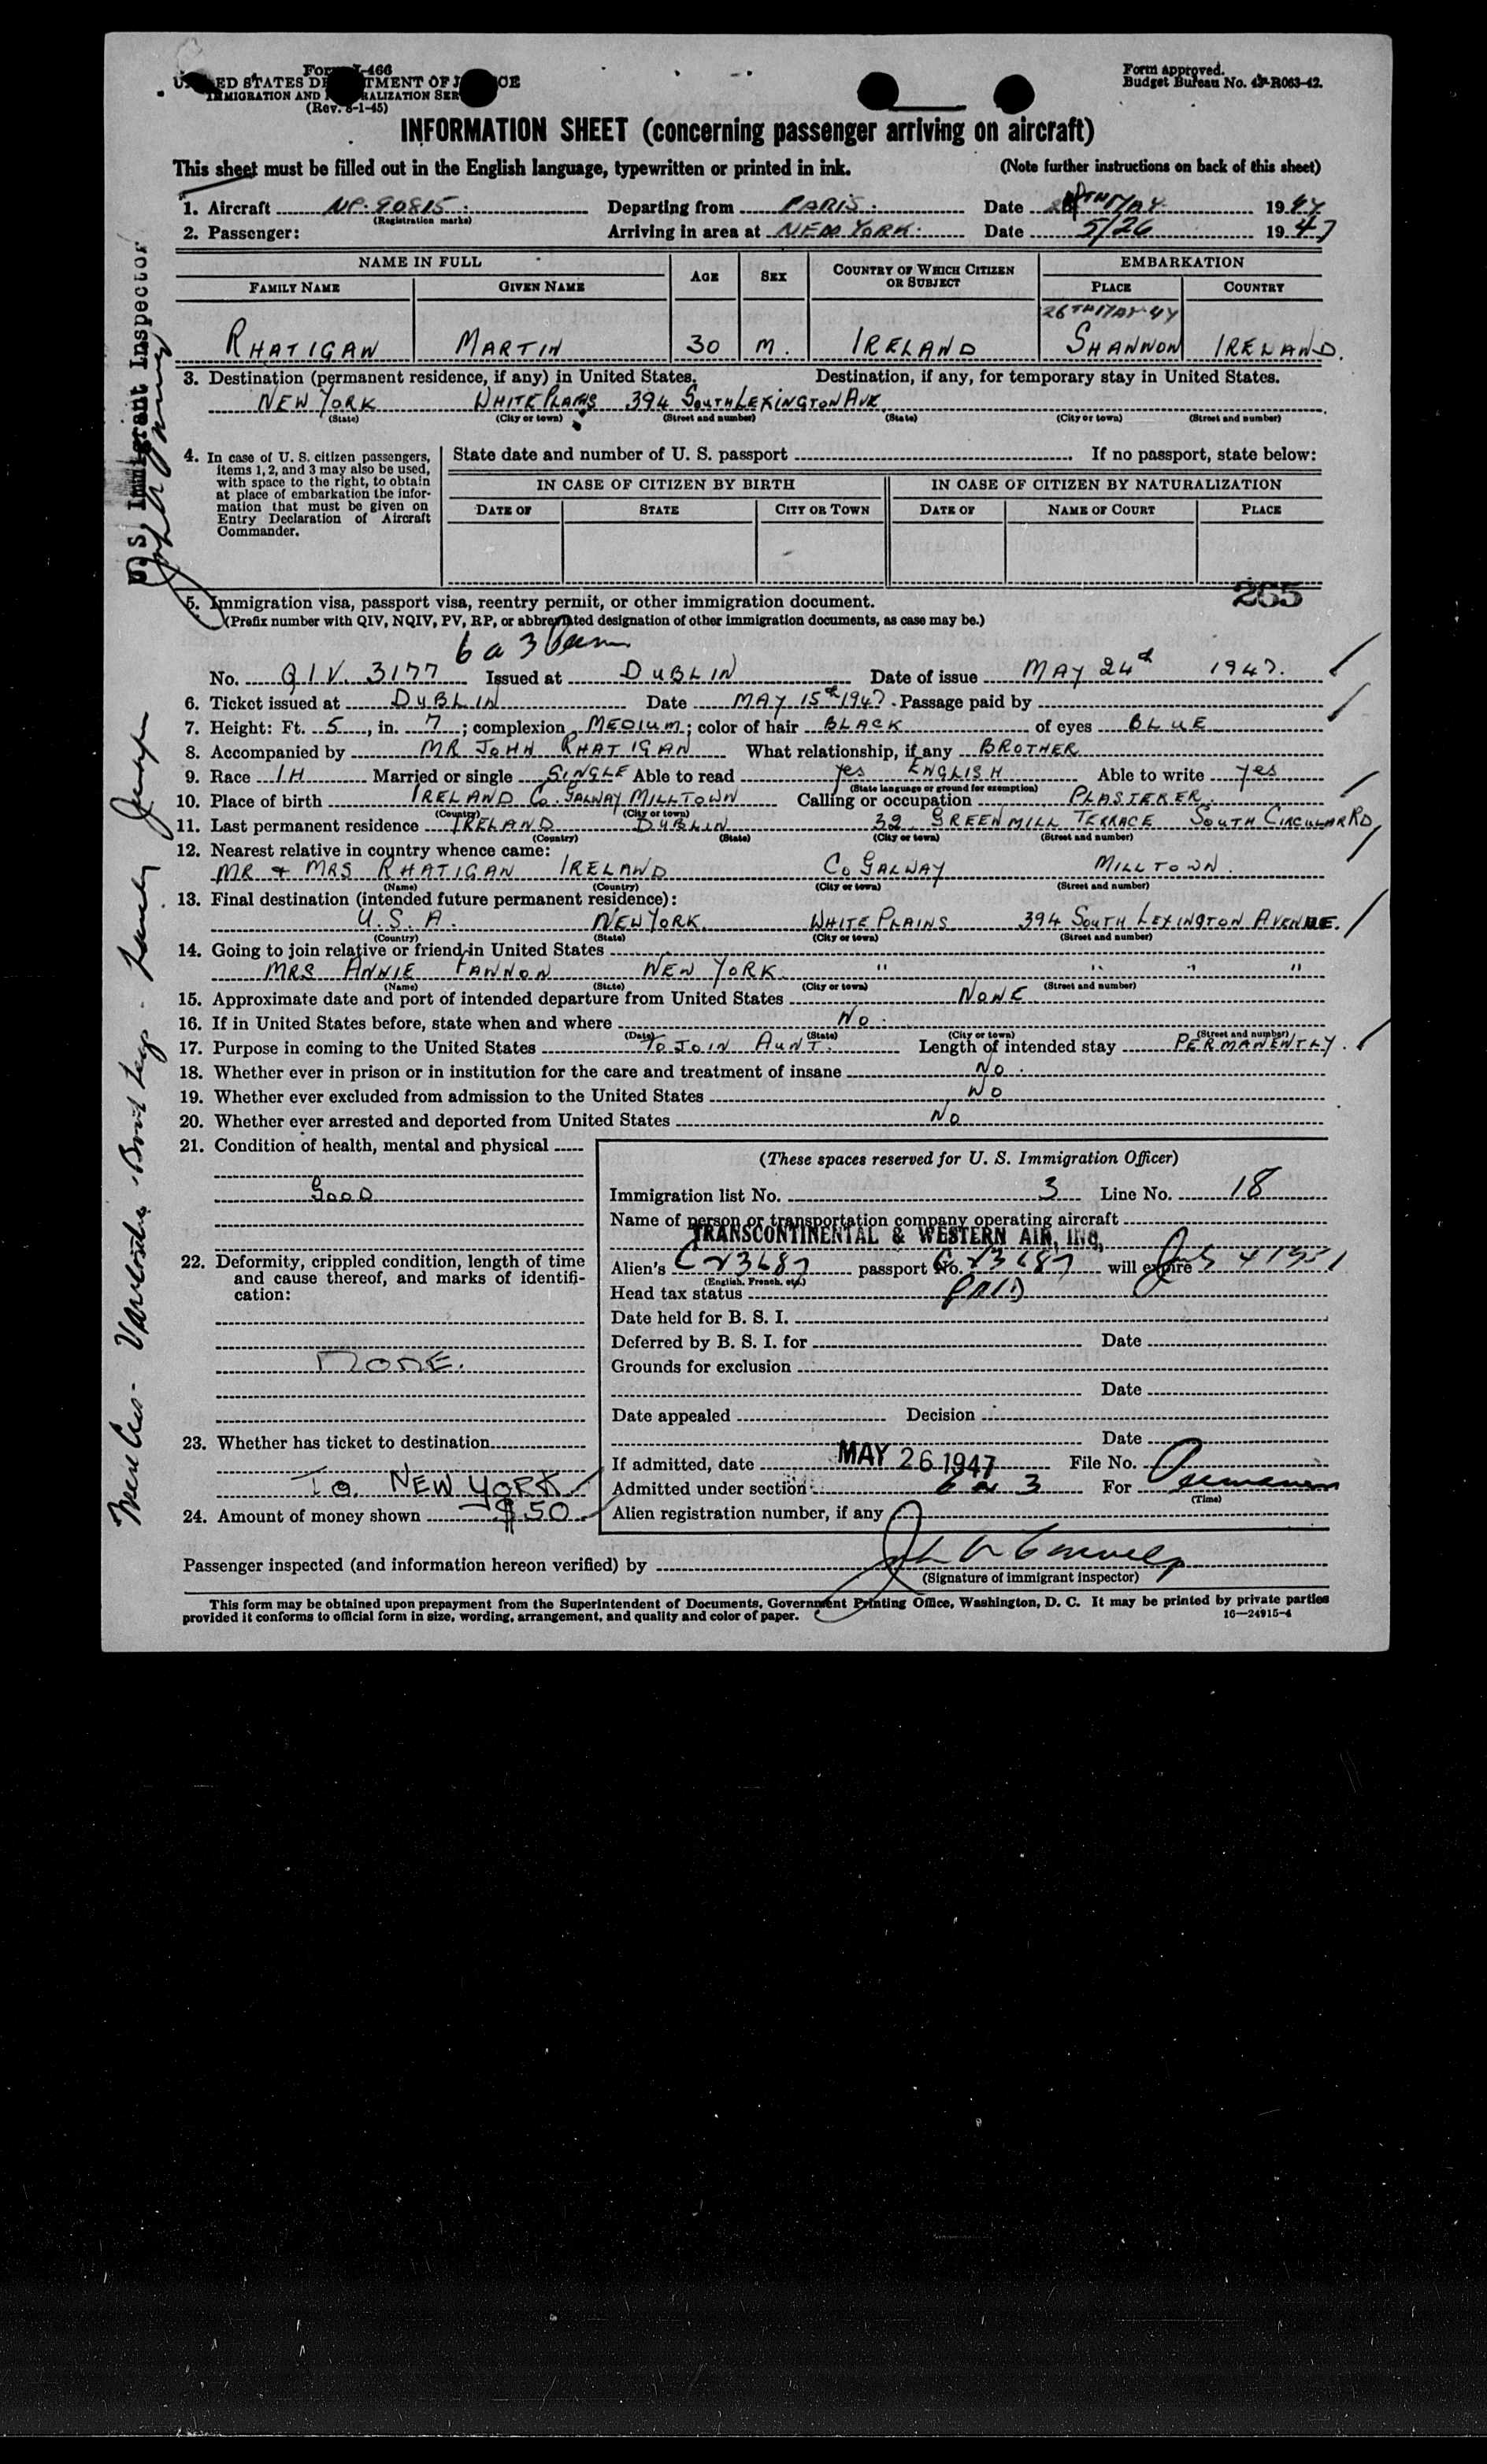 Form I-466
UNITED STATES DEPARTMENT OF JUSTICE
IMMIGRATION AND NATURALIZATION SERVICE
(Rev. 8-1-45)
Form approved.
Budget Bureau No. 43-R063-42.
INFORMATION SHEET (concerning passenger arriving on aircraft)
This sheet must be filled out in the English language, typewritten or printed in ink. (Note further instructions on back of this sheet)
1. Aircraft 90815. (Registration marks) Departing from PARIS. Date MAY 1947
2. Passenger: Arriving in area at NEW YORK. Date 5/26 1947
NAME IN FULL AGE SEX COUNTRY OF WHICH CITIZEN OR SUBJECT EMBARKATION
FAMILY NAME GIVEN NAME PLACE COUNTRY
26TH MAY 47
RHATIGAN MARTIN 30 M. IRELAND SHANNON IRELAND.
3. Destination (permanent residence, if any) in United States. Destination, if any, for temporary stay in United States.
NEW YORK WHITE PLAINS 394 SOUTH LEXINGTON AVE
(State) (City or town) (Street and number) (State) (City or town) (Street and number)
4. In case of U. S. citizen passengers, items 1, 2, and 3 may also be used, with space to the right, to obtain at place of embarkation the information that must be given on Entry Declaration of Aircraft Commander.
State date and number of U. S. passport If no passport, state below:
IN CASE OF CITIZEN BY BIRTH IN CASE OF CITIZEN BY NATURALIZATION
DATE OF STATE CITY OR TOWN DATE OF NAME OF COURT PLACE
265
5. Immigration visa, passport visa, reentry permit, or other immigration document.
(Prefix number with QIV, NQIV, PV, RP, or abbreviated designation of other immigration documents, as case may be.)
6 a 3 Perm
No. QIV. 3177 Issued at DUBLIN Date of issue MAY 24th 1947.
6. Ticket issued at DUBLIN Date MAY 15th 1947. Passage paid by
7. Height: Ft. 5, in. 7; complexion MEDIUM; color of hair BLACK of eyes BLUE
8. Accompanied by MR JOHN RHATIGAN What relationship, if any BROTHER
9. Race IH Married or single SINGLE Able to read yes ENGLISH Able to write yes
(State language or ground for exemption)
10. Place of birth IRELAND Co. GALWAY MILLTOWN Calling or occupation PLASTERER.
(Country) (City or town)
11. Last permanent residence IRELAND DUBLIN 32 GREENMILL TERRACE SOUTH CIRCULAR RD
(Country) (State) (City or town) (Street and number)
12. Nearest relative in country whence came:
MR & MRS RHATIGAN IRELAND Co GALWAY MILLTOWN.
(Name) (Country) (City or town) (Street and number)
13. Final destination (intended future permanent residence):
U.S.A. NEW YORK. WHITE PLAINS 394 SOUTH LEXINGTON AVENUE.
(Country) (State) (City or town) (Street and number)
14. Going to join relative or friend in United States
MRS ANNIE FANNON NEW YORK. " " " "
(Name) (State) (City or town) (Street and number)
15. Approximate date and port of intended departure from United States NONE
16. If in United States before, state when and where No.
(Date) (State) (City or town) (Street and number)
17. Purpose in coming to the United States TO JOIN AUNT. Length of intended stay PERMANENTLY.
18. Whether ever in prison or in institution for the care and treatment of insane No.
19. Whether ever excluded from admission to the United States No
20. Whether ever arrested and deported from United States No
21. Condition of health, mental and physical
GOOD
22. Deformity, crippled condition, length of time and cause thereof, and marks of identification:
NONE.
23. Whether has ticket to destination
To. NEW YORK
24. Amount of money shown $50
(These spaces reserved for U. S. Immigration Officer)
Immigration list No. 3 Line No. 18
Name of person or transportation company operating aircraft
TRANSCONTINENTAL & WESTERN AIR, INC.
Alien's C 23687 passport No. C 23687 will expire 4 1951
(English, French, etc.)
Head tax status PAID
Date held for B. S. I.
Deferred by B. S. I. for Date
Grounds for exclusion
Date
Date appealed Decision
Date
If admitted, date MAY 26 1947 File No.
Admitted under section 6 a 3 For Permanent
(Time)
Alien registration number, if any
Passenger inspected (and information hereon verified) by
(Signature of immigrant inspector)
This form may be obtained upon prepayment from the Superintendent of Documents, Government Printing Office, Washington, D. C. It may be printed by private parties
provided it conforms to official form in size, wording, arrangement, and quality and color of paper. 16—24915-4
U. S. Immigrant Inspector